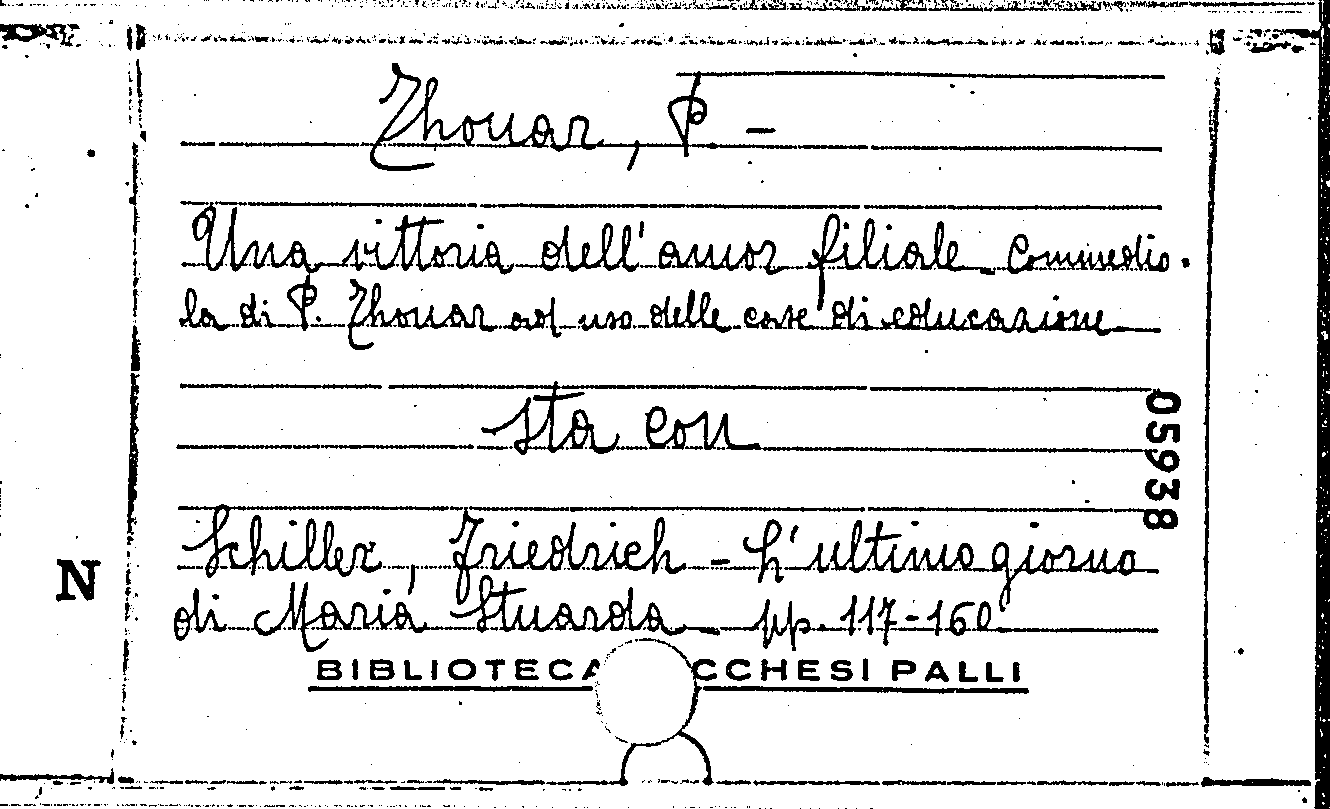 Thouar, P. -
Una vittoria dell'amor filiale - Commedio-
la di P. Thouar ad uso delle case di educazione -
sta con
Schiller, Friedrich - L'ultimo giorno
di Maria Stuarda - pp. 117-160
BIBLIOTECA CCHESI PALLI
05938
N